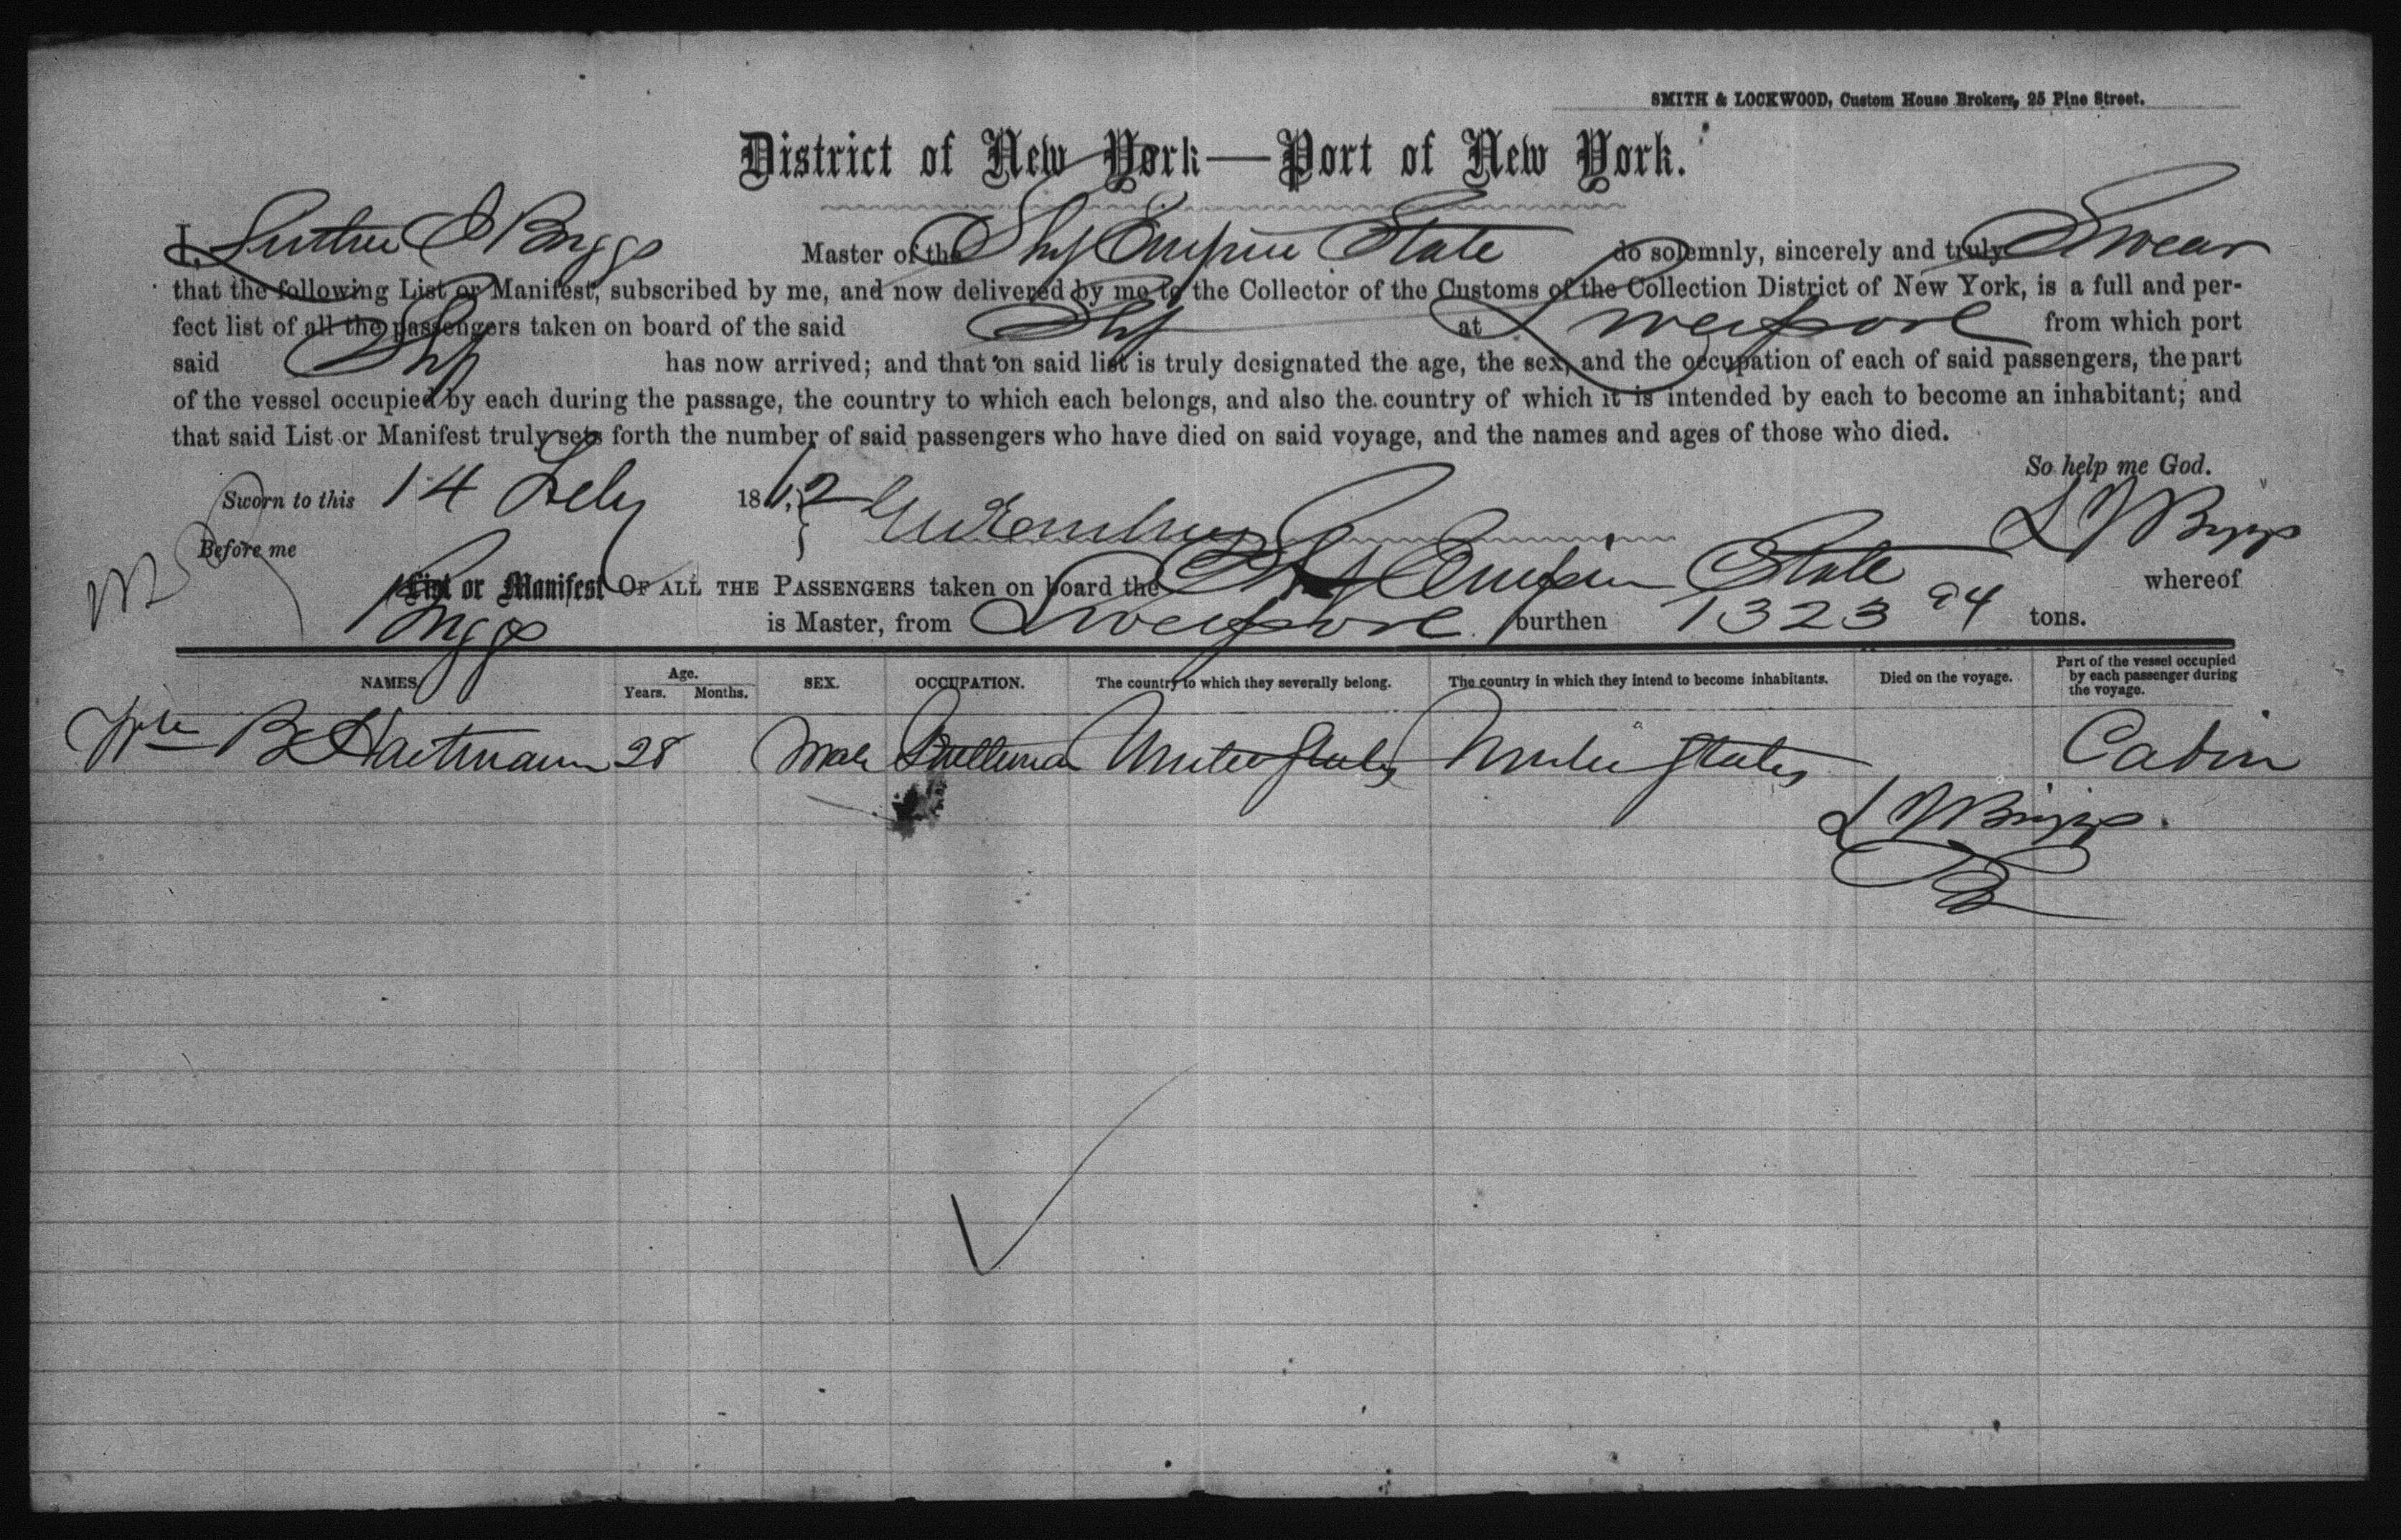 SMITH & LOCKWOOD, Custom House Brokers, 25 Pine Street.
District of New York—Port of New York.
I, Luther J Briggs Master of the Ship Empire State do solemnly, sincerely and truly Swear
that the following List or Manifest, subscribed by me, and now delivered by me to the Collector of the Customs of the Collection District of New York, is a full and per-
fect list of all the passengers taken on board of the said Ship at Liverpool from which port
said Ship has now arrived; and that on said list is truly designated the age, the sex, and the occupation of each of said passengers, the part
of the vessel occupied by each during the passage, the country to which each belongs, and also the country of which it is intended by each to become an inhabitant; and
that said List or Manifest truly sets forth the number of said passengers who have died on said voyage, and the names and ages of those who died.
So help me God.
Sworn to this 14 July 1862
L J Briggs
Before me
List or Manifest OF ALL THE PASSENGERS taken on board the Ship Empire State whereof
Briggs is Master, from Liverpool burthen 1323 94 tons.
NAMES Age. Years. Months. SEX. OCCUPATION. The country to which they severally belong. The country in which they intend to become inhabitants. Died on the voyage. Part of the vessel occupied by each passenger during the voyage.
Wm B Hartmann 28 Male United States United States Cabin
L J Briggs